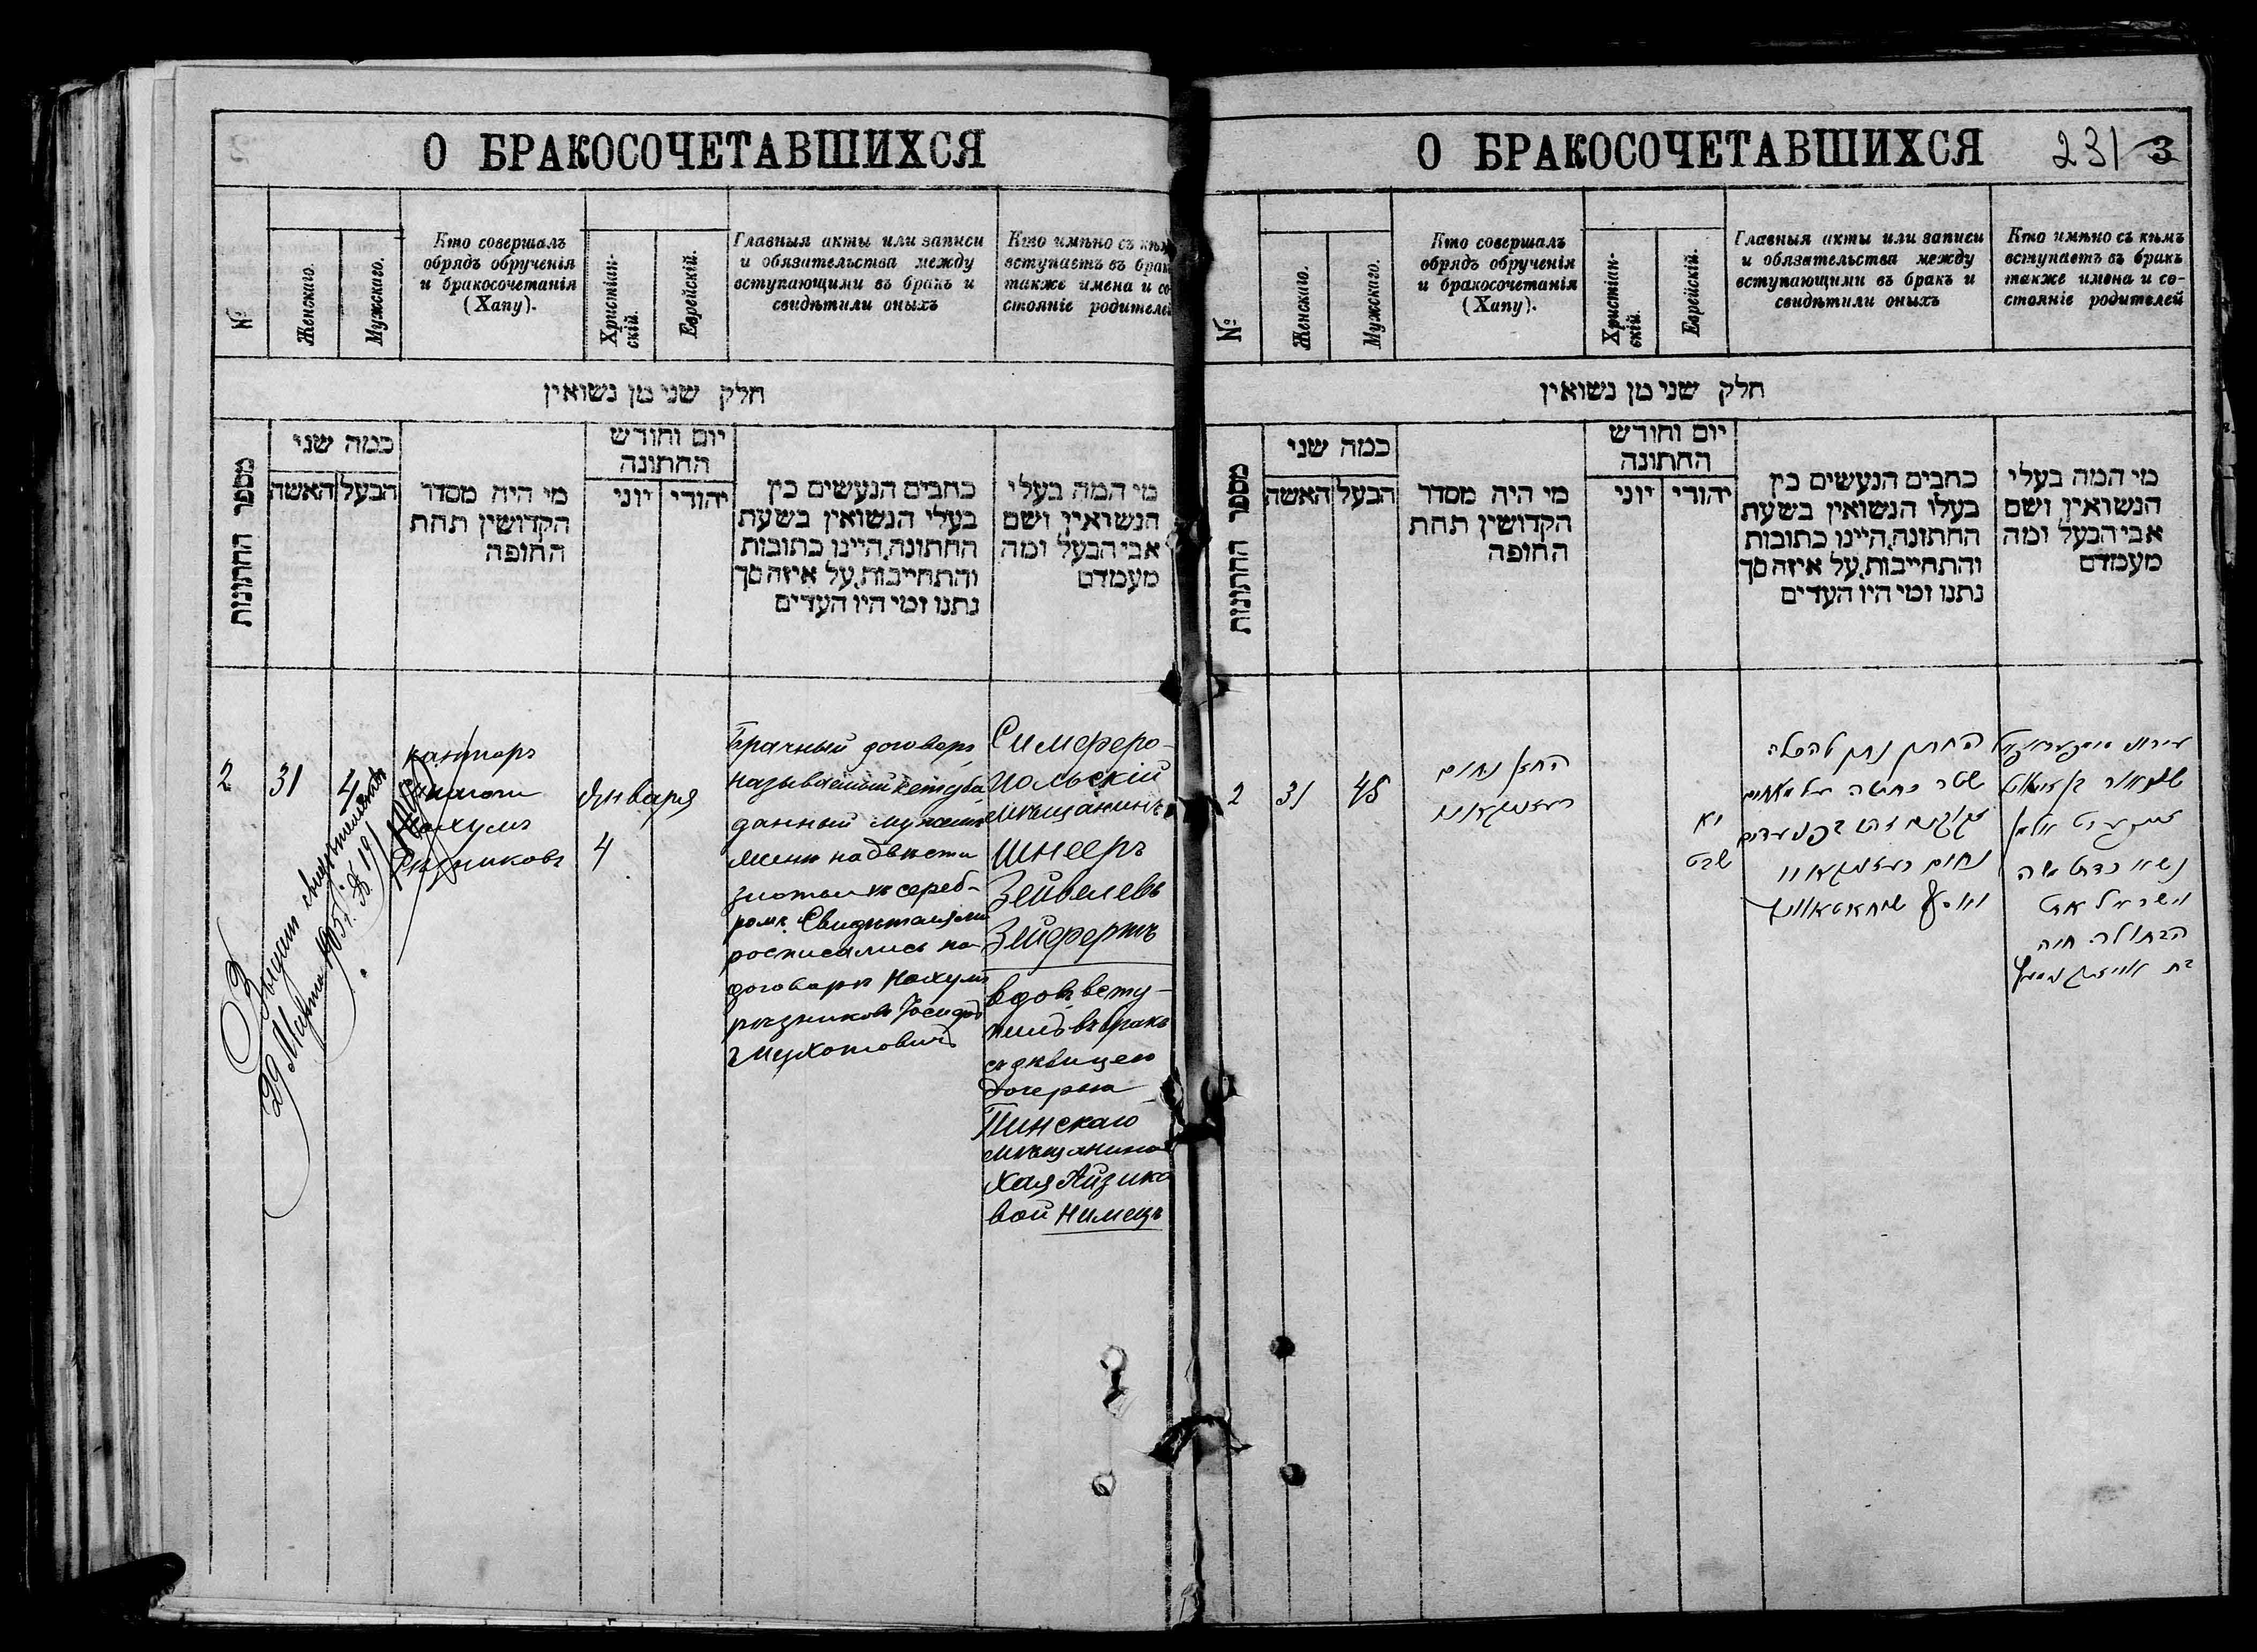 О БРАКОСОЧЕТАВШИХСЯ
№
Женскаго.
Мужскаго.
Кто совершалъ
обрядъ обрученія
и бракосочетанія
(Хапу).
Христіан-
скій.
Еврейскій.
Главныя акты или записи
и обязательства между
вступающими въ бракъ и
свидѣтили оныхъ
Кто имѣно съ кѣмъ
вступаетъ въ брак
также имена и со
стояніе родителей
חלק שני מן נשואין
מספר החתונות
כמה שני
האשה
הבעל
מי היה מסדר
הקדושין תחת
החופה
יום וחודש
החתונה
יוני
יהודי
כתבים הנעשים בין
בעלי הנשואין בשעת
החתונה, היינו כתובות
והתחייבות, על איזה סך
נתנו ומי היו העדים
מי המה בעלי
הנשואין ושם
אבי הבעל ומה
מעמדם
2
31
4
канторъ
Нахумъ
Рѣзниковъ
Января
4
Брачный договоръ
называемый кетуба
данный мужемъ
жене на двѣсти
злотыхъ сереб-
ромъ. Свидѣтелями
росписались на
договоръ Нахумъ
рѣзниковъ Іосифъ
Шухотовичъ
Симферо-
польскій
мѣщанинъ
Шнееръ
Зейвелевъ
Зейфертъ
вдовъ всту-
пилъ въ бракъ
съ дѣвицею
дочерью
Пинскаго
мѣщанина
Хая Айзико
вой Нимецъ
Выдано свидѣтельство
29 Марта 1905 г. № 19
О БРАКОСОЧЕТАВШИХСЯ
231
3
№
Женскаго.
Мужскаго.
Кто совершалъ
обрядъ обрученія
и бракосочетанія
(Хапу).
Христіан-
скій.
Еврейскій.
Главныя акты или записи
и обязательства между
вступающими въ бракъ и
свидѣтили оныхъ
Кто имѣно съ кѣмъ
вступаетъ въ бракъ
также имена и со-
стояніе родителей
חלק שני מן נשואין
מספר החתונות
כמה שני
האשה
הבעל
מי היה מסדר
הקדושין תחת
החופה
יום וחודש
החתונה
יוני
יהודי
כתבים הנעשים בין
בעלו הנשואין בשעת
החתונה, היינו כתובות
והתחייבות, על איזה סך
נתנו ומי היו העדים
מי המה בעלי
הנשואין ושם
אבי הבעל ומה
מעמדם
2
31
45
החזן נחום
רעזניקאוו
יא
שבט
החתן נתן להכלה
שטר כתובה על מאתים
זקוקים
נחום רעזניקאוו
שניאור בן זייוויל
זייפערט אלמן
נשא כדת משה
וישראל את
הבתולה חיה
בת אייזיק